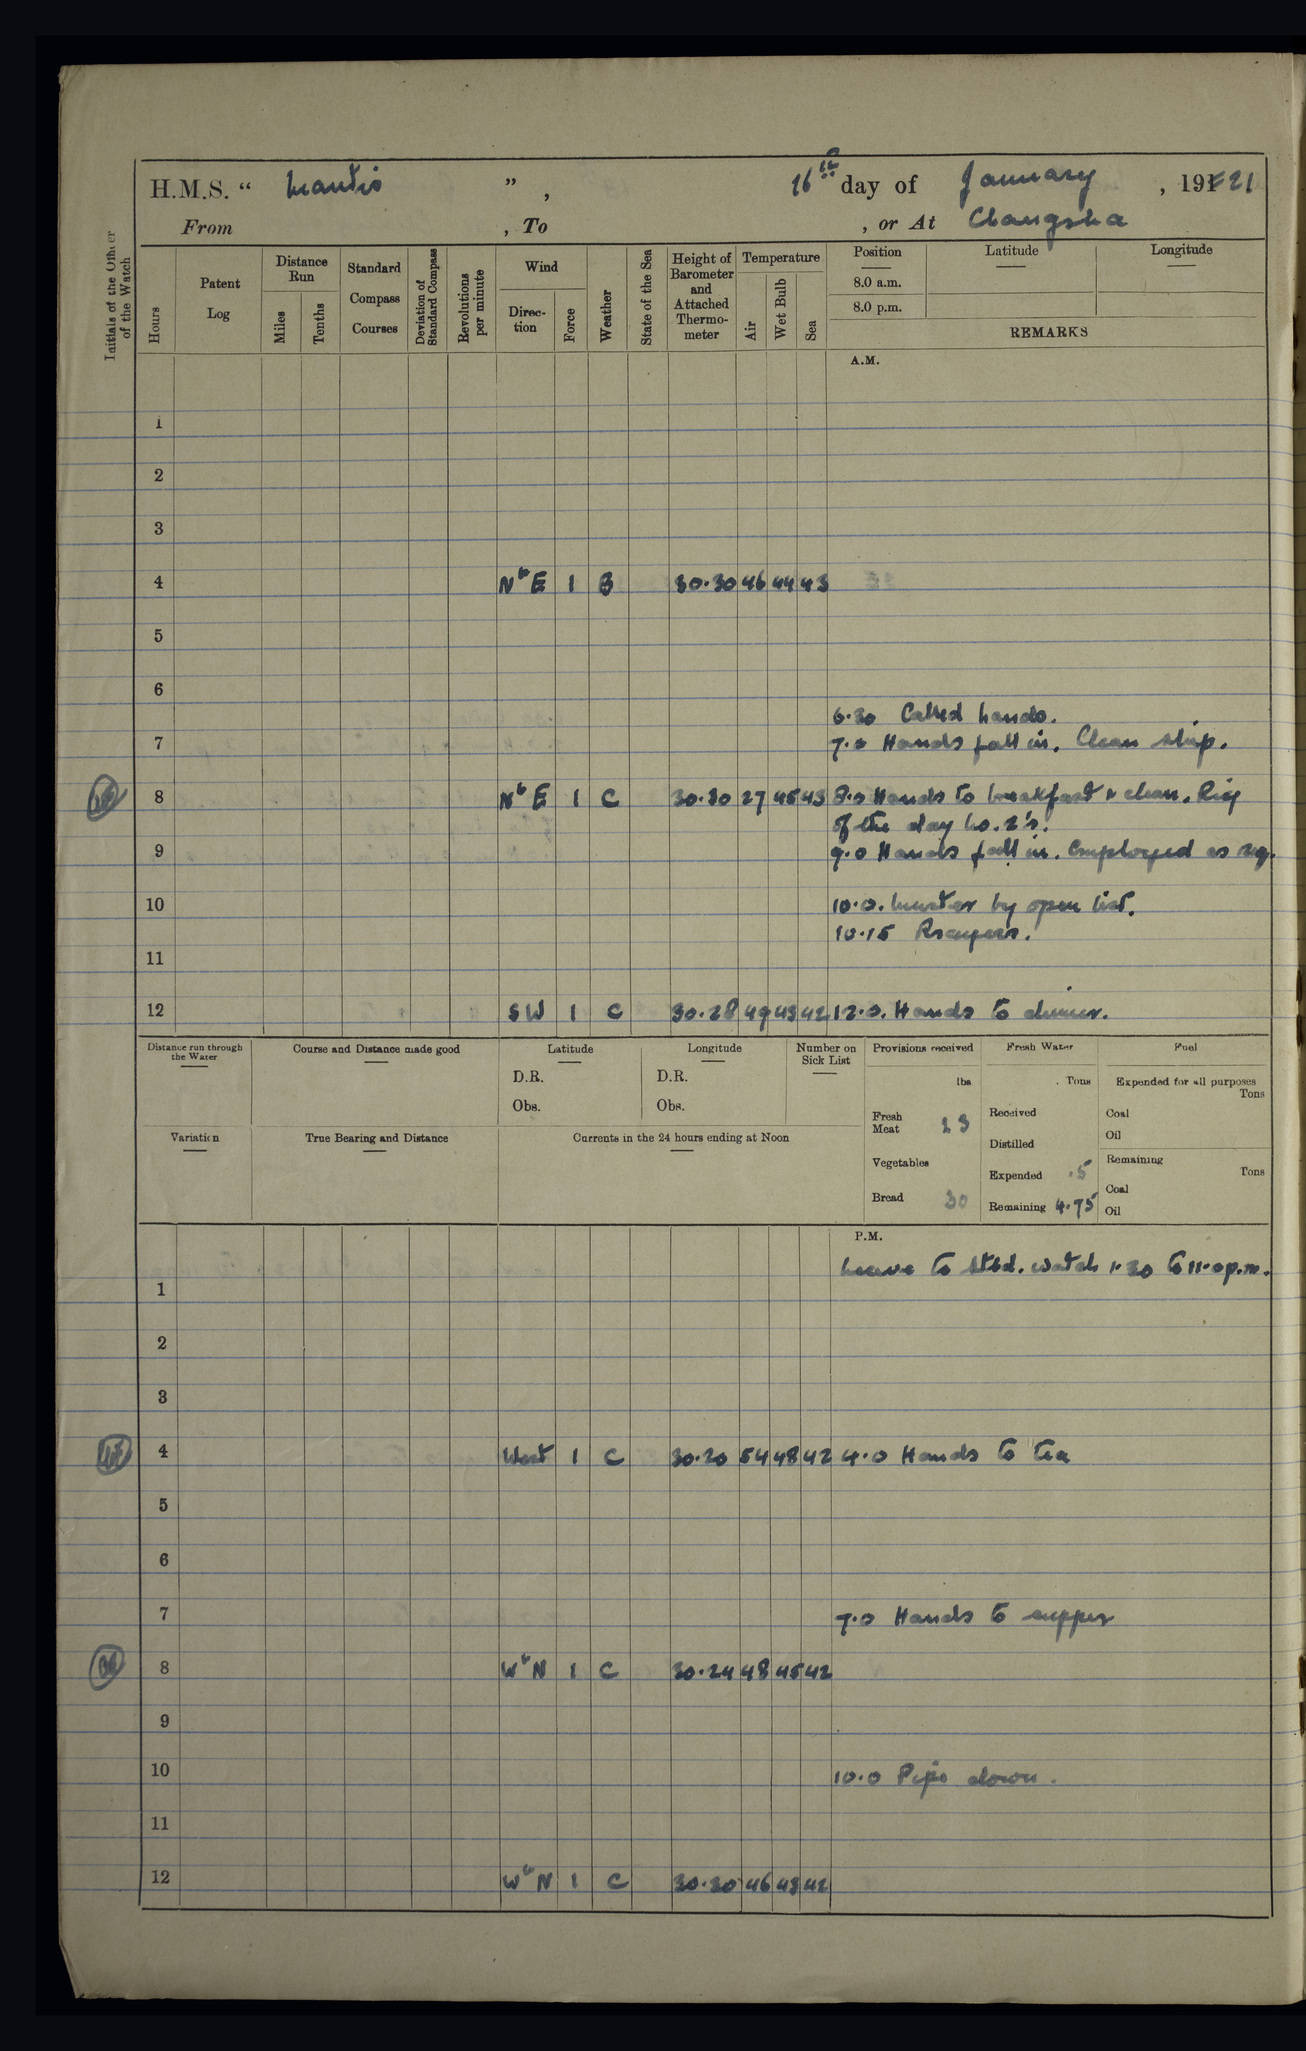 H.M.S. “ Mantis ” , 16th day of January , 1921
From , To , or At Changsha
Initials of the Officer of the Watch
Hours
Patent Log
Distance Run
Miles
Tenths
Standard Compass Courses
Deviation of Standard Compass
Revolutions per minute
Wind
Direc-tion
Force
Weather
State of the Sea
Height of Barometer and Attached Thermo-meter
Temperature
Air
Wet Bulb
Sea
Position
8.0 a.m.
8.0 p.m.
Latitude
Longitude
REMARKS
A.M.
1
2
3
4 NbE 1 B 30.30 46 44 43
5
6
6.30 Called hands.
7 7.0 Hands fall in. Clean ship.
8 NbE 1 C 30.30 27 45 43 8.0 Hands to breakfast & clean. Rig
of the day No. 2's.
9 9.0 Hands fall in. Employed as req.
10 10.0. Muster by open list.
10.15 Prayers.
11
12 SW 1 C 30.28 49 43 42 12.0. Hands to dinner.
Distance run through the Water
Course and Distance made good
Latitude
D.R.
Obs.
Longitude
D.R.
Obs.
Number on Sick List
Provisions received
lbs
Fresh Meat 23
Vegetables
Bread 30
Fresh Water
Tons
Received
Distilled
Expended .5
Remaining 4.75
Fuel
Expended for all purposes
Tons
Coal
Oil
Remaining
Tons
Coal
Oil
Variation
True Bearing and Distance
Currents in the 24 hours ending at Noon
P.M.
Leave to stbd. watch 1.30 to 11.0 p.m.
1
2
3
4 West 1 C 30.20 54 48 42 4.0 Hands to tea
5
6
7 7.0 Hands to supper
8 WbN 1 C 30.24 48 45 42
9
10 10.0 Pipe down.
11
12 WbN 1 C 30.30 46 43 42